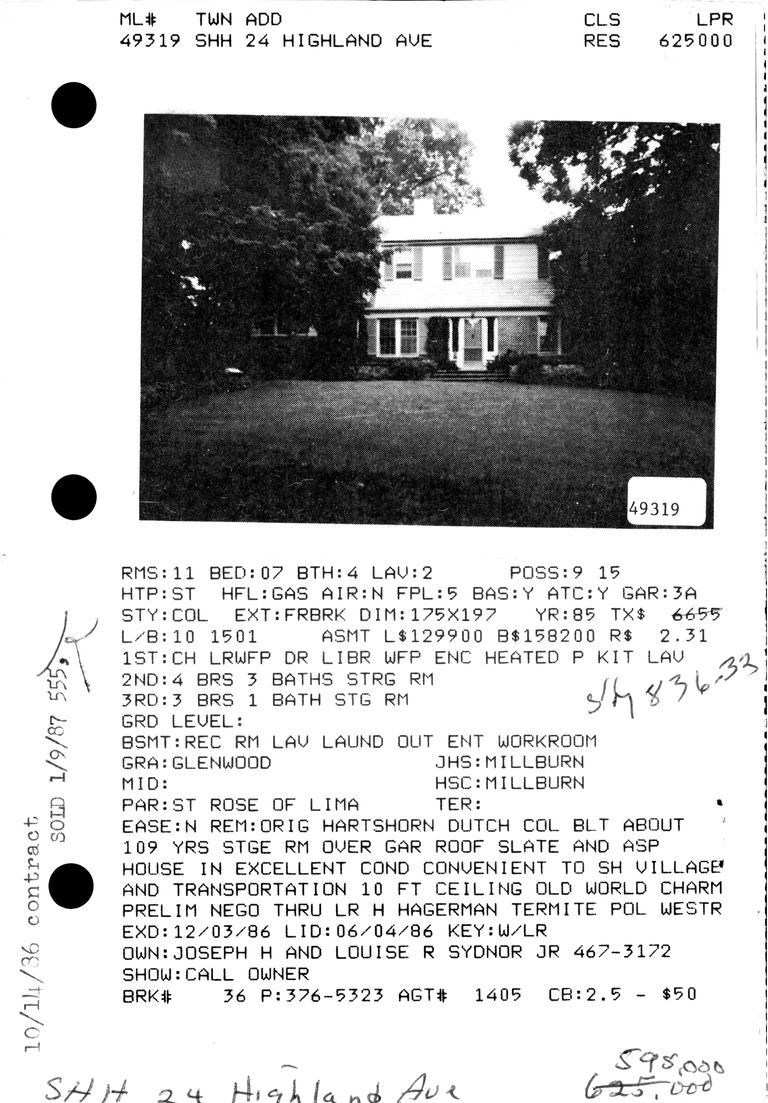 ML# TWN ADD CLS LPR
49319 SHH 24 HIGHLAND AVE RES 625000
49319
RMS:11 BED:07 BTH:4 LAV:2 POSS:9 15
HTP:ST HFL:GAS AIR:N FPL:5 BAS:Y ATC:Y GAR:3A
STY:COL EXT:FRBRK DIM:175X197 YR:85 TX$ 6655
L/B:10 1501 ASMT L$129900 B$158200 R$ 2.31
1ST:CH LRWFP DR LIBR WFP ENC HEATED P KIT LAV
2ND:4 BRS 3 BATHS STRG RM
3RD:3 BRS 1 BATH STG RM
836.33
GRD LEVEL:
BSMT:REC RM LAV LAUND OUT ENT WORKROOM
GRA:GLENWOOD JHS:MILLBURN
MID: HSC:MILLBURN
PAR:ST ROSE OF LIMA TER:
EASE:N REM:ORIG HARTSHORN DUTCH COL BLT ABOUT
109 YRS STGE RM OVER GAR ROOF SLATE AND ASP
HOUSE IN EXCELLENT COND CONVENIENT TO SH VILLAGE
AND TRANSPORTATION 10 FT CEILING OLD WORLD CHARM
PRELIM NEGO THRU LR H HAGERMAN TERMITE POL WESTR
EXD:12/03/86 LID:06/04/86 KEY:W/LR
OWN:JOSEPH H AND LOUISE R SYDNOR JR 467-3172
SHOW:CALL OWNER
BRK# 36 P:376-5323 AGT# 1405 CB:2.5 - $50
10/14/86 contract
SOLD 1/9/87 555,
598,000
SHH 24 Highland Ave 625,000